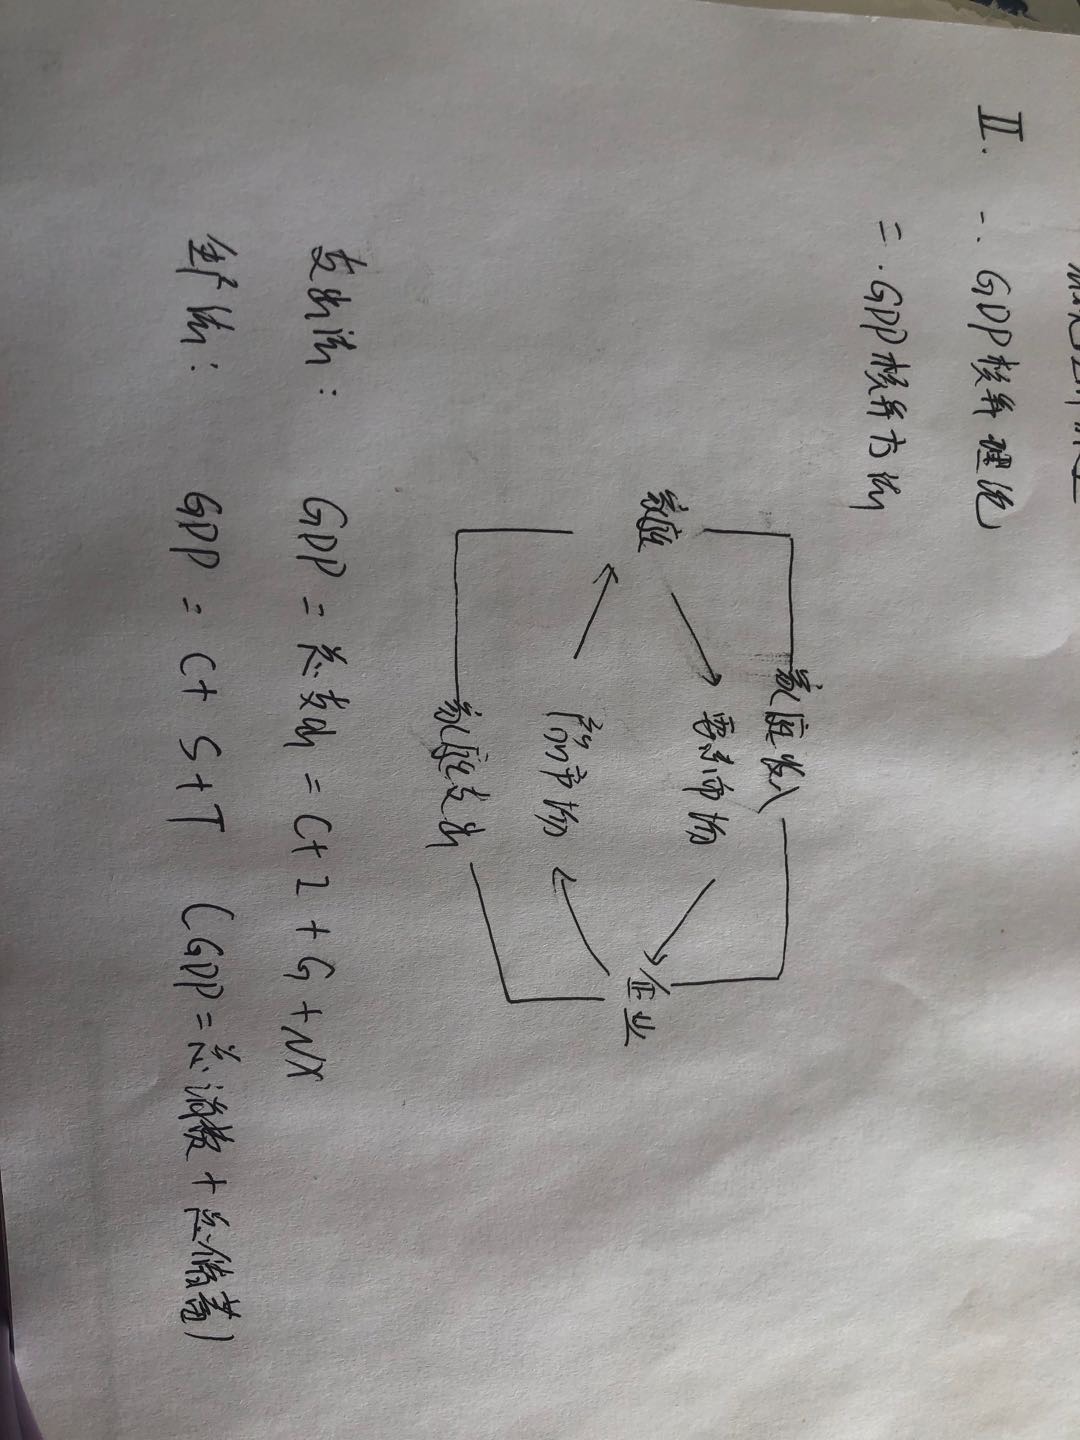 II. 一. GDP核算理论
二. GDP核算方法
家庭收入
要素市场
家庭
企业
产品市场
家庭支出
支出法: GDP = 总支出 = C+I+G+NX
生产法: GDP = C+S+T (GDP=总消费+总储蓄)